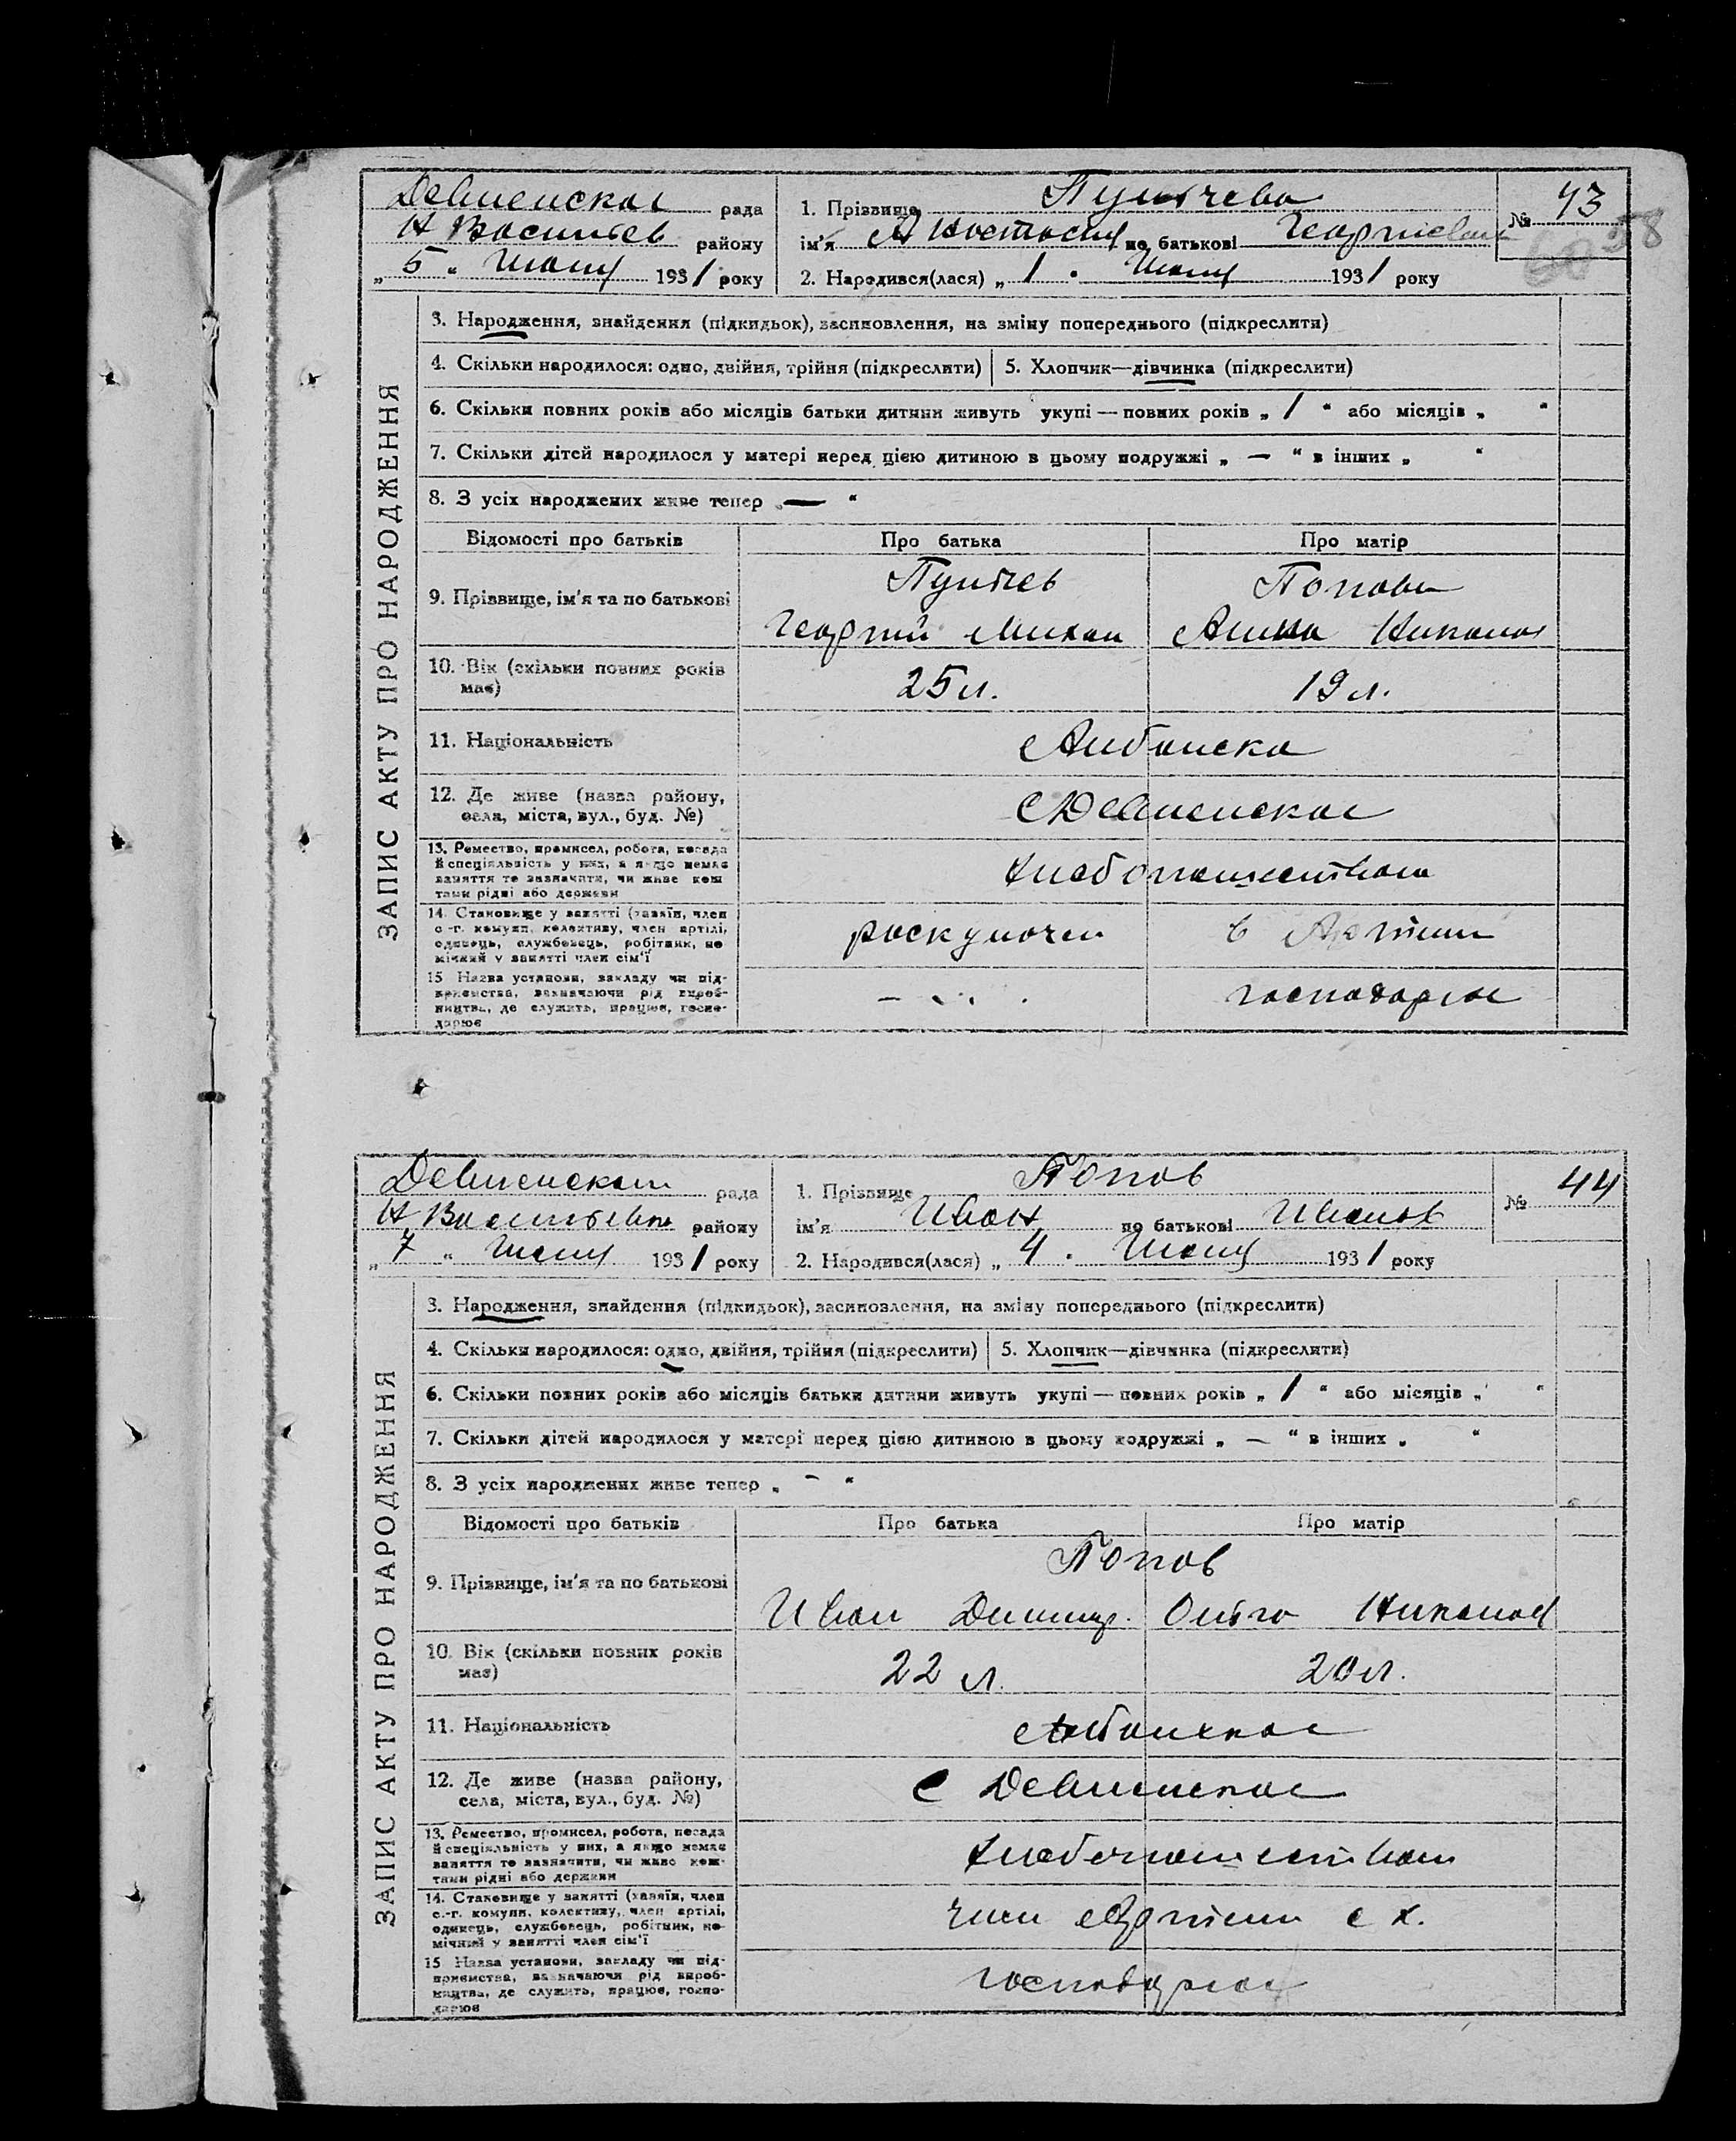 Девненская рада
Н Васильев району
„ 5 " Июня 1931 року
1. Прізвище Пульчева
ім'я Анастасия по батькові Георгиевна
2. Народився(лася) „ 1 " Июня 1931 року
№ 43
58
60
ЗАПИС АКТУ ПРО НАРОДЖЕННЯ
3. Народження, знайдення (підкидьок), засиновлення, на зміну попереднього (підкреслити)
4. Скільки народилося: одно, двійня, трійня (підкреслити) 5. Хлопчик—дівчинка (підкреслити)
6. Скільки повних років або місяців батьки дитини живуть укупі — повних років „ 1 " або місяців „ "
7. Скільки дітей народилося у матері перед цією дитиною в цьому подружжі „ — " в інших „ "
8. З усіх народжених живе тепер „ — "
Відомості про батьків Про батька Про матір
9. Прізвище, ім'я та по батькові
Пульчев Попова
Георгий Михай Анна Николая
10. Вік (скільки повних років має)
25 л. 19 л.
11. Національність Албанска
12. Де живе (назва району, села, міста, вул., буд. №) С Девненское
13. Ремество, промисел, робота, посада
й спеціяльність у них, а якщо немає
заняття то зазначити, чи живе кош
тами рідні або держави
Хлебопашеством
14. Становище у занятті (хазяїн, член
с.-г. комуни, колективу, член артілі,
одинець, службовець, робітник, по
мічний у занятті член сім'ї
роскулачен в Артели
15 Назва установи, закладу чи під-
приємства, зазначаючи рід вироб-
ництва, де служить, працює, госпо-
дарює
господарює
Девненская рада
Н Васильевка району
„ 7 " Июня 1931 року
1. Прізвище Попов
ім'я Иван по батькові Иванов
2. Народився(лася) „ 4 " Июня 1931 року
№ 44
ЗАПИС АКТУ ПРО НАРОДЖЕННЯ
3. Народження, знайдення (підкидьок), засиновлення, на зміну попереднього (підкреслити)
4. Скільки народилося: одно, двійня, трійня (підкреслити) 5. Хлопчик—дівчинка (підкреслити)
6. Скільки повних років або місяців батьки дитини живуть укупі — повних років „ 1 " або місяців „ "
7. Скільки дітей народилося у матері перед цією дитиною в цьому подружжі „ — " в інших „ "
8. З усіх народжених живе тепер „ — "
Відомості про батьків Про батька Про матір
9. Прізвище, ім'я та по батькові
Попов
Иван Димитр. Ольга Николая
10. Вік (скільки повних років має)
22 л. 20 л.
11. Національність Албанское
12. Де живе (назва району, села, міста, вул., буд. №) С Девненское
13. Ремество, промисел, робота, посада
й спеціяльність у них, а якщо немає
заняття то зазначити, чи живе кош-
тами рідні або держави
Хлебопашеством
14. Становище у занятті (хазяїн, член
с.-г. комуни, колективу, член артілі,
одинець, службовець, робітник, по-
мічний у занятті член сім'ї
член Артели с х.
15 Назва установи, закладу чи під-
приємства, зазначаючи рід вироб-
ництва, де служить, працює, госпо-
дарює
господарює